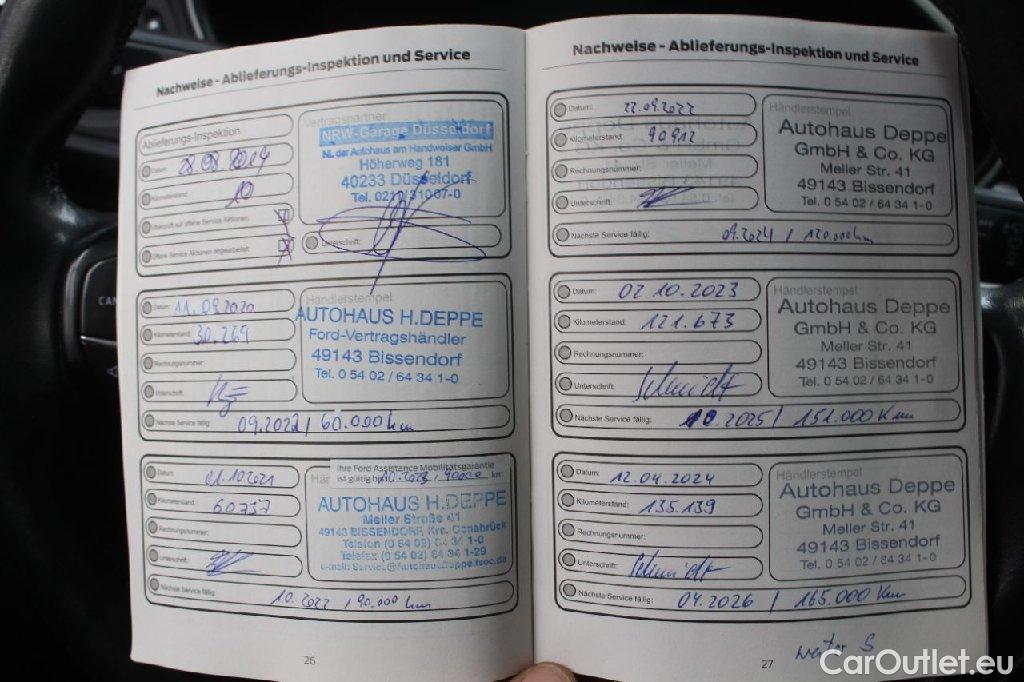 Nachweise - Ablieferungs-Inspektion und Service
Ablieferungs-Inspektion
Datum:
Kilometerstand:
10
Offene Service Aktionen
Unterschrift:
Vertragspartner
NRW-Garage Düsseldorf
NL der Autohaus am Handweiser GmbH
Höherweg 181
40233 Düsseldorf
Datum: 11.09.2020
Kilometerstand: 30.269
Rechnungsnummer:
Unterschrift:
Nächste Service fällig: 09.2022 / 60.000 km
Händlerstempel
AUTOHAUS H.DEPPE
Ford-Vertragshändler
49143 Bissendorf
Tel. 0 54 02 / 64 34 1-0
Datum: 01.10 2021
Kilometerstand: 60737
Rechnungsnummer:
Unterschrift:
Nächste Service fällig: 10.2022 / 90.000 km
Ihre Ford Assistance Mobilitätsgarantie
ist gültig bis
km:
AUTOHAUS H.DEPPE
Meller Straße 41
49143 BISSENDORF, Krs. Osnabrück
Telefon (0 54 02) 64 34 1-0
Telefax (0 54 02) 64 34 1-29
26
Nachweise - Ablieferungs-Inspektion und Service
Datum: 22.09.2022
Kilometerstand: 90912
Rechnungsnummer:
Unterschrift:
Nächste Service fällig: 09.2024 / 120.000 km
Händlerstempel
Autohaus Deppe
GmbH & Co. KG
Meller Str. 41
49143 Bissendorf
Tel. 0 54 02 / 64 34 1-0
Datum: 02 10.2023
Kilometerstand: 121.673
Rechnungsnummer:
Unterschrift: Schmidt
Nächste Service fällig: 10.2025 / 152.000 Km
Händlerstempel
Autohaus Deppe
GmbH & Co. KG
Meller Str. 41
49143 Bissendorf
Tel. 0 54 02 / 64 34 1-0
Datum: 12.04.2024
Kilometerstand: 135.139
Rechnungsnummer:
Unterschrift: Schmidt
Nächste Service fällig: 04.2026 / 165.000 Km
Händlerstempel
Autohaus Deppe
GmbH & Co. KG
Meller Str. 41
49143 Bissendorf
Tel. 0 54 02 / 64 34 1-0
27
weiter S
CarOutlet.eu